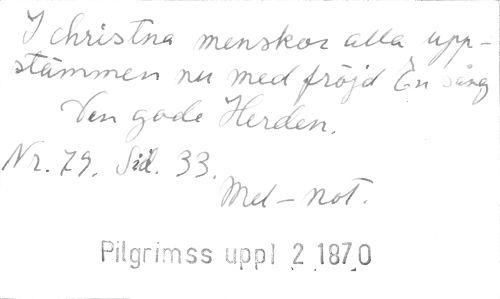 I christna menskor alla upp-
stämmen nu med fröjd En sång
Den gode Herden.
Nr. 79. Sid. 33.
Mel – not.
Pilgrimss uppl 2 1870